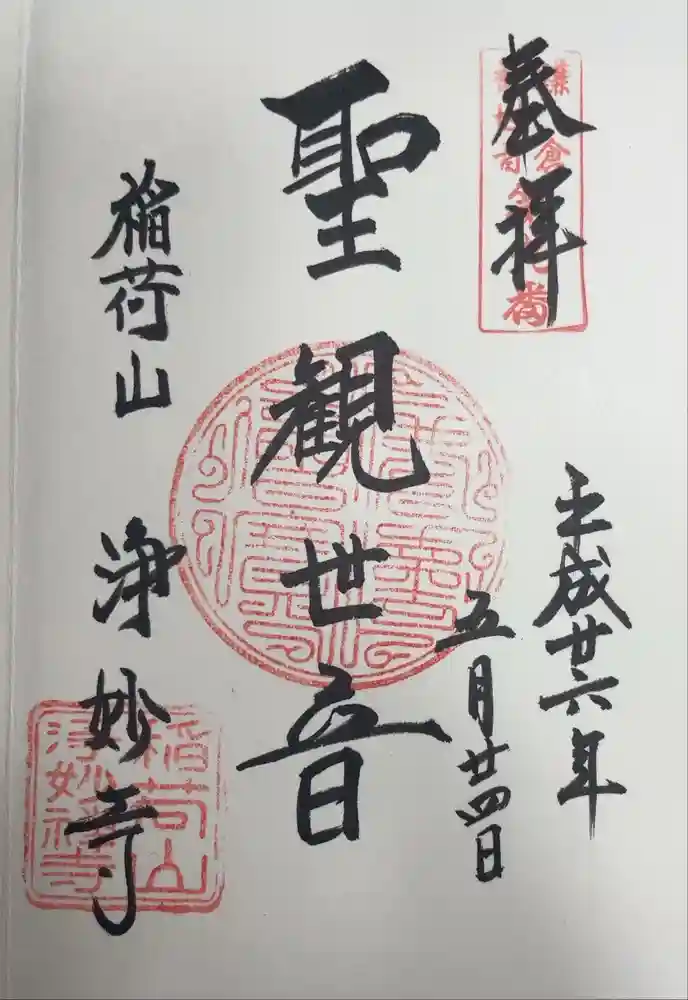 奉拝
平成廿六年
五月廿四日
聖観世音
稲荷山 浄妙寺
稲荷山
浄妙禅寺